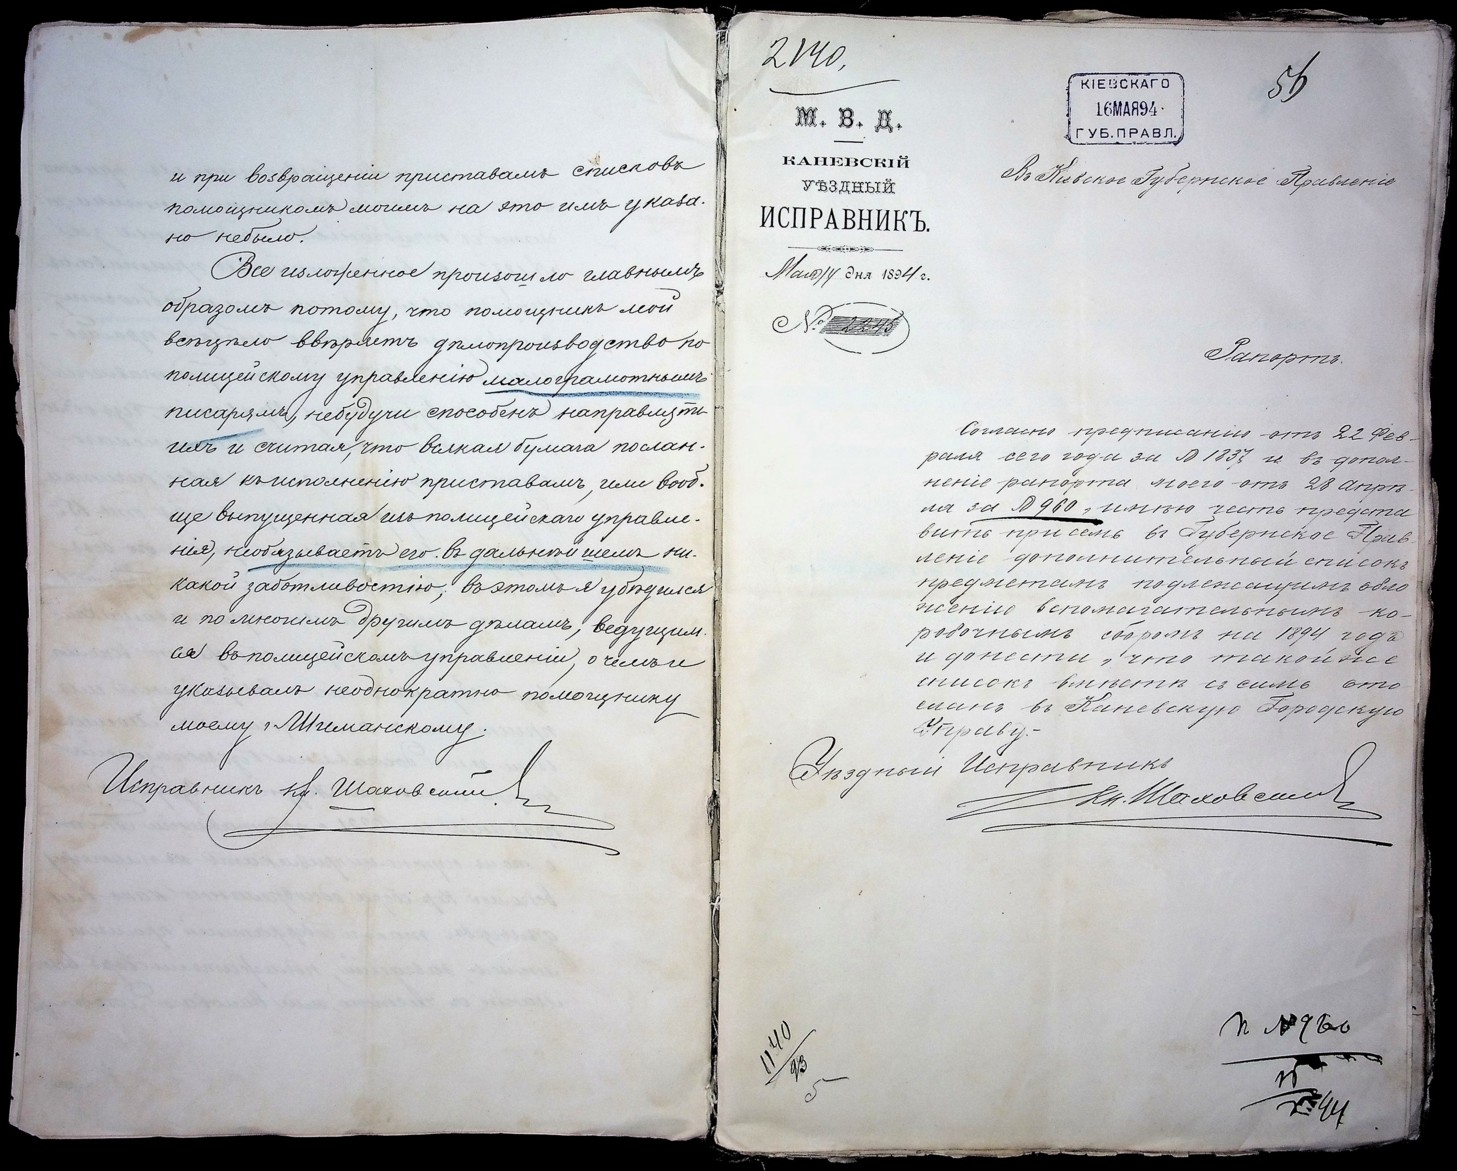 и при возвращеніи приставамъ списковъ
помощникомъ моимъ на это имъ указа-
но небыло.
Все изложенное произошло главнымъ
образомъ потому, что помощникъ мой
всецѣло ввѣряетъ дѣлопроизводство по
полицейскому управленію малограмотнымъ
писарямъ, небудучи способенъ направлять
ихъ и считая, что всякая бумага послан-
ная къ исполненію приставамъ, или вооб-
ще выпущенная изъ полицейскаго управле-
нія, необязываетъ его въ дальнѣйшемъ ни-
какой заботливостію; въ этомъ я убѣдился
и по многимъ другимъ дѣламъ, ведущим-
ся въ полицейскомъ управленіи, о чемъ и
указывалъ неоднократно помощнику
моему г.
Исправникъ кн. Шаховской
2140,
56
М. В. Д.
КАНЕВСКІЙ
УѢЗДНЫЙ
ИСПРАВНИКЪ.
Мая 14 дня 1894 г.
№
КІЕВСКАГО
16МАЯ94
ГУБ. ПРАВЛ.
Въ Кіевское Губернское Правленіе
Рапортъ.
Согласно предписанію отъ 22 Фев-
раля сего года за № 1837 и въ допол-
неніе рапорта моего отъ 28 Апрѣ-
ля за № 960, имѣю честь предста
вить при семъ въ Губернское Прав-
леніе дополнительный списокъ
предметамъ подлежащимъ обло
женію вспомагательнымъ ко-
робочнымъ сборомъ на 1894 годъ
и донести, что такой же
списокъ вмѣстѣ съ симъ ото
сланъ въ Каневскую Городскую
Управу.-
Уѣздный Исправникъ
Кн. Шаховской
1140/93
5
№ 960